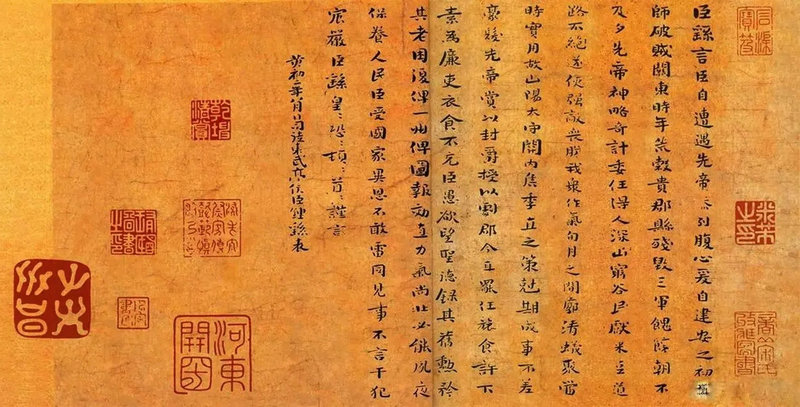 臣繇言臣自遭遇先帝忝列腹心爰自建安之初王
師破賊關東時年荒穀貴郡縣殘毀三軍餽饟朝不
及夕先帝神略奇計委任得人深山窮谷民獻米豆道
路不絕遂使強敵喪膽我衆作氣旬月之間廓清蟻聚當
時實用故山陽太守關內侯季直之策剋期成事不差
豪髮先帝賞以封爵授以劇郡今直罷任旅食許下
素為廉吏衣食不充臣愚欲望聖德錄其舊勳矜
其老困復俾一州俾圖報效直力氣尚壯必能夙夜
保養人民臣受國家異恩不敢雷同見事不言干犯
宸嚴臣繇皇〻恐〻頓〻首〻謹言
黃初二年八月日司徒東武亭侯臣鍾繇表
乾坤清賞
米芾之印
河東